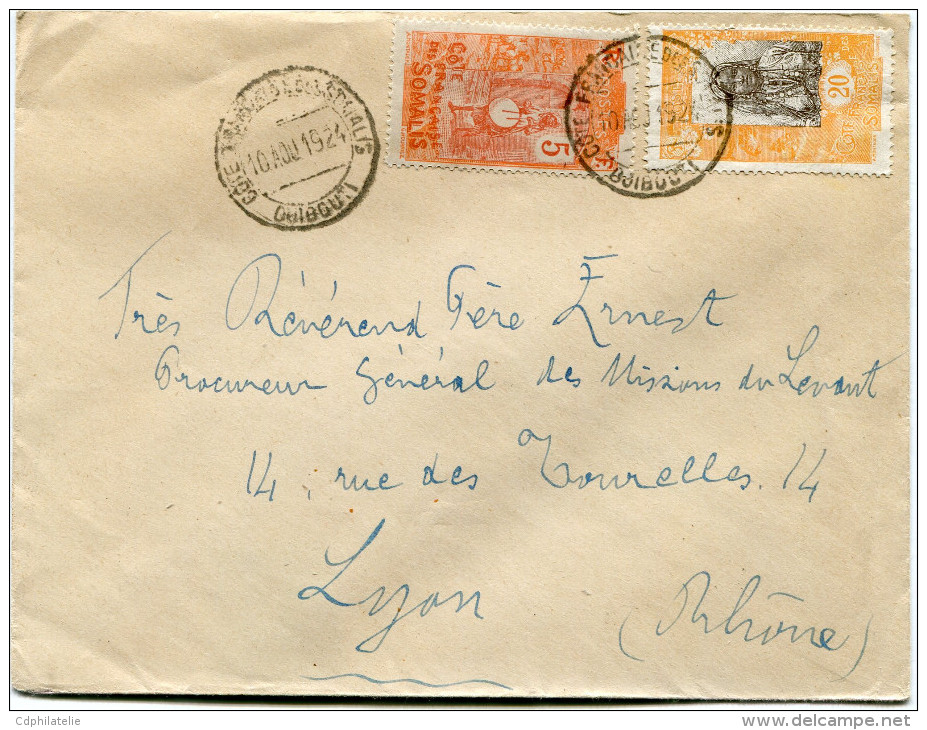 CÔTE FRANÇAISE DES SOMALIS
10 AOU 1924
DJIBOUTI
CÔTE
FRANÇAISE
DES
SOMALIS
5
CÔTE FRANÇAISE DES SOMALIS
10 AOU 1924
DJIBOUTI
20
CÔTE FRANÇAISE DES
SOMALIS
Très Révérend Père Ernest
Procureur Général des Missions du Levant
14, rue des Tourelles. 14
Lyon
(Rhône)
Cdphilatelie
www.delcampe.net